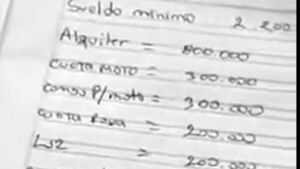 Sueldo minimo 2.200
Alquiler = 800.000
cuota moto = 300.000
consu P/moto = 300.000
cuota Ropa = 200.000
Luz = 200.000